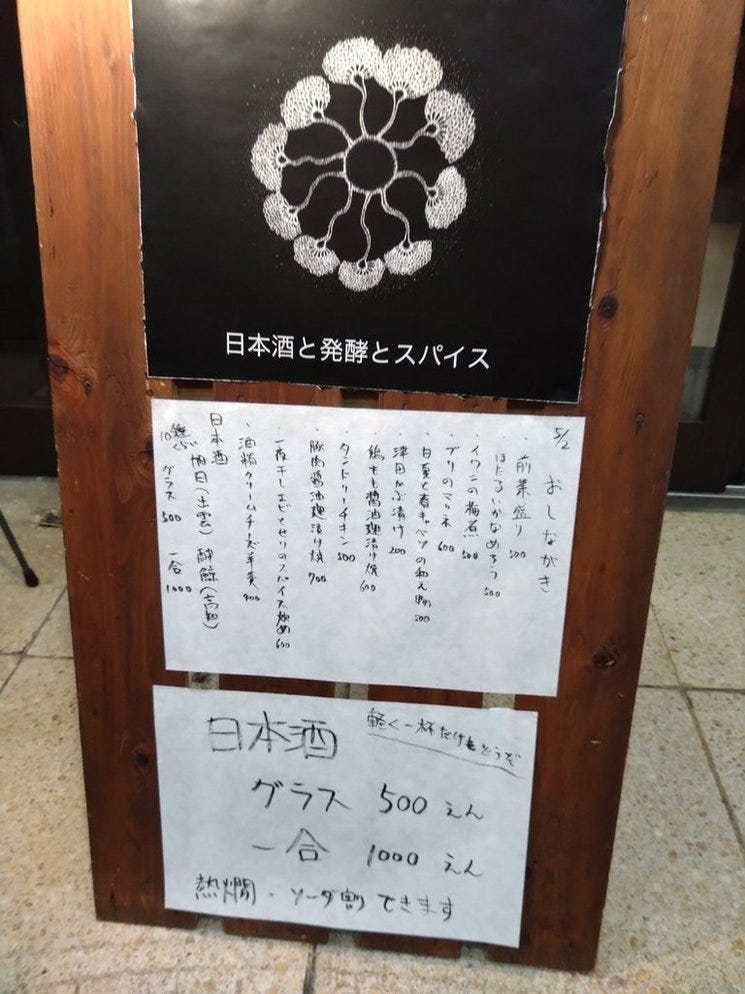 日本酒と発酵とスパイス
5/2
おしながき
・前菜盛り 500
・ほたるいかなめろう 500
・イワシの梅煮 500
・ブリのマリネ 600
・日夏と春キャベツの和え物 500
・津田かぶ漬け 200
・鶏もも醤油麹漬け焼 600
・タンドリーチキン 500
・豚肉醤油麹漬け焼 700
・一夜干しエビとセリのスパイス炒め 600
・酒粕クリームチーズ羊羹 400
日本酒
旭日(出雲) 酔鯨(高知)
10種くらい グラス 500 一合 1000
日本酒
軽く一杯だけもどうぞ
グラス 500 えん
一合 1000 えん
熱燗・ソーダ割できます